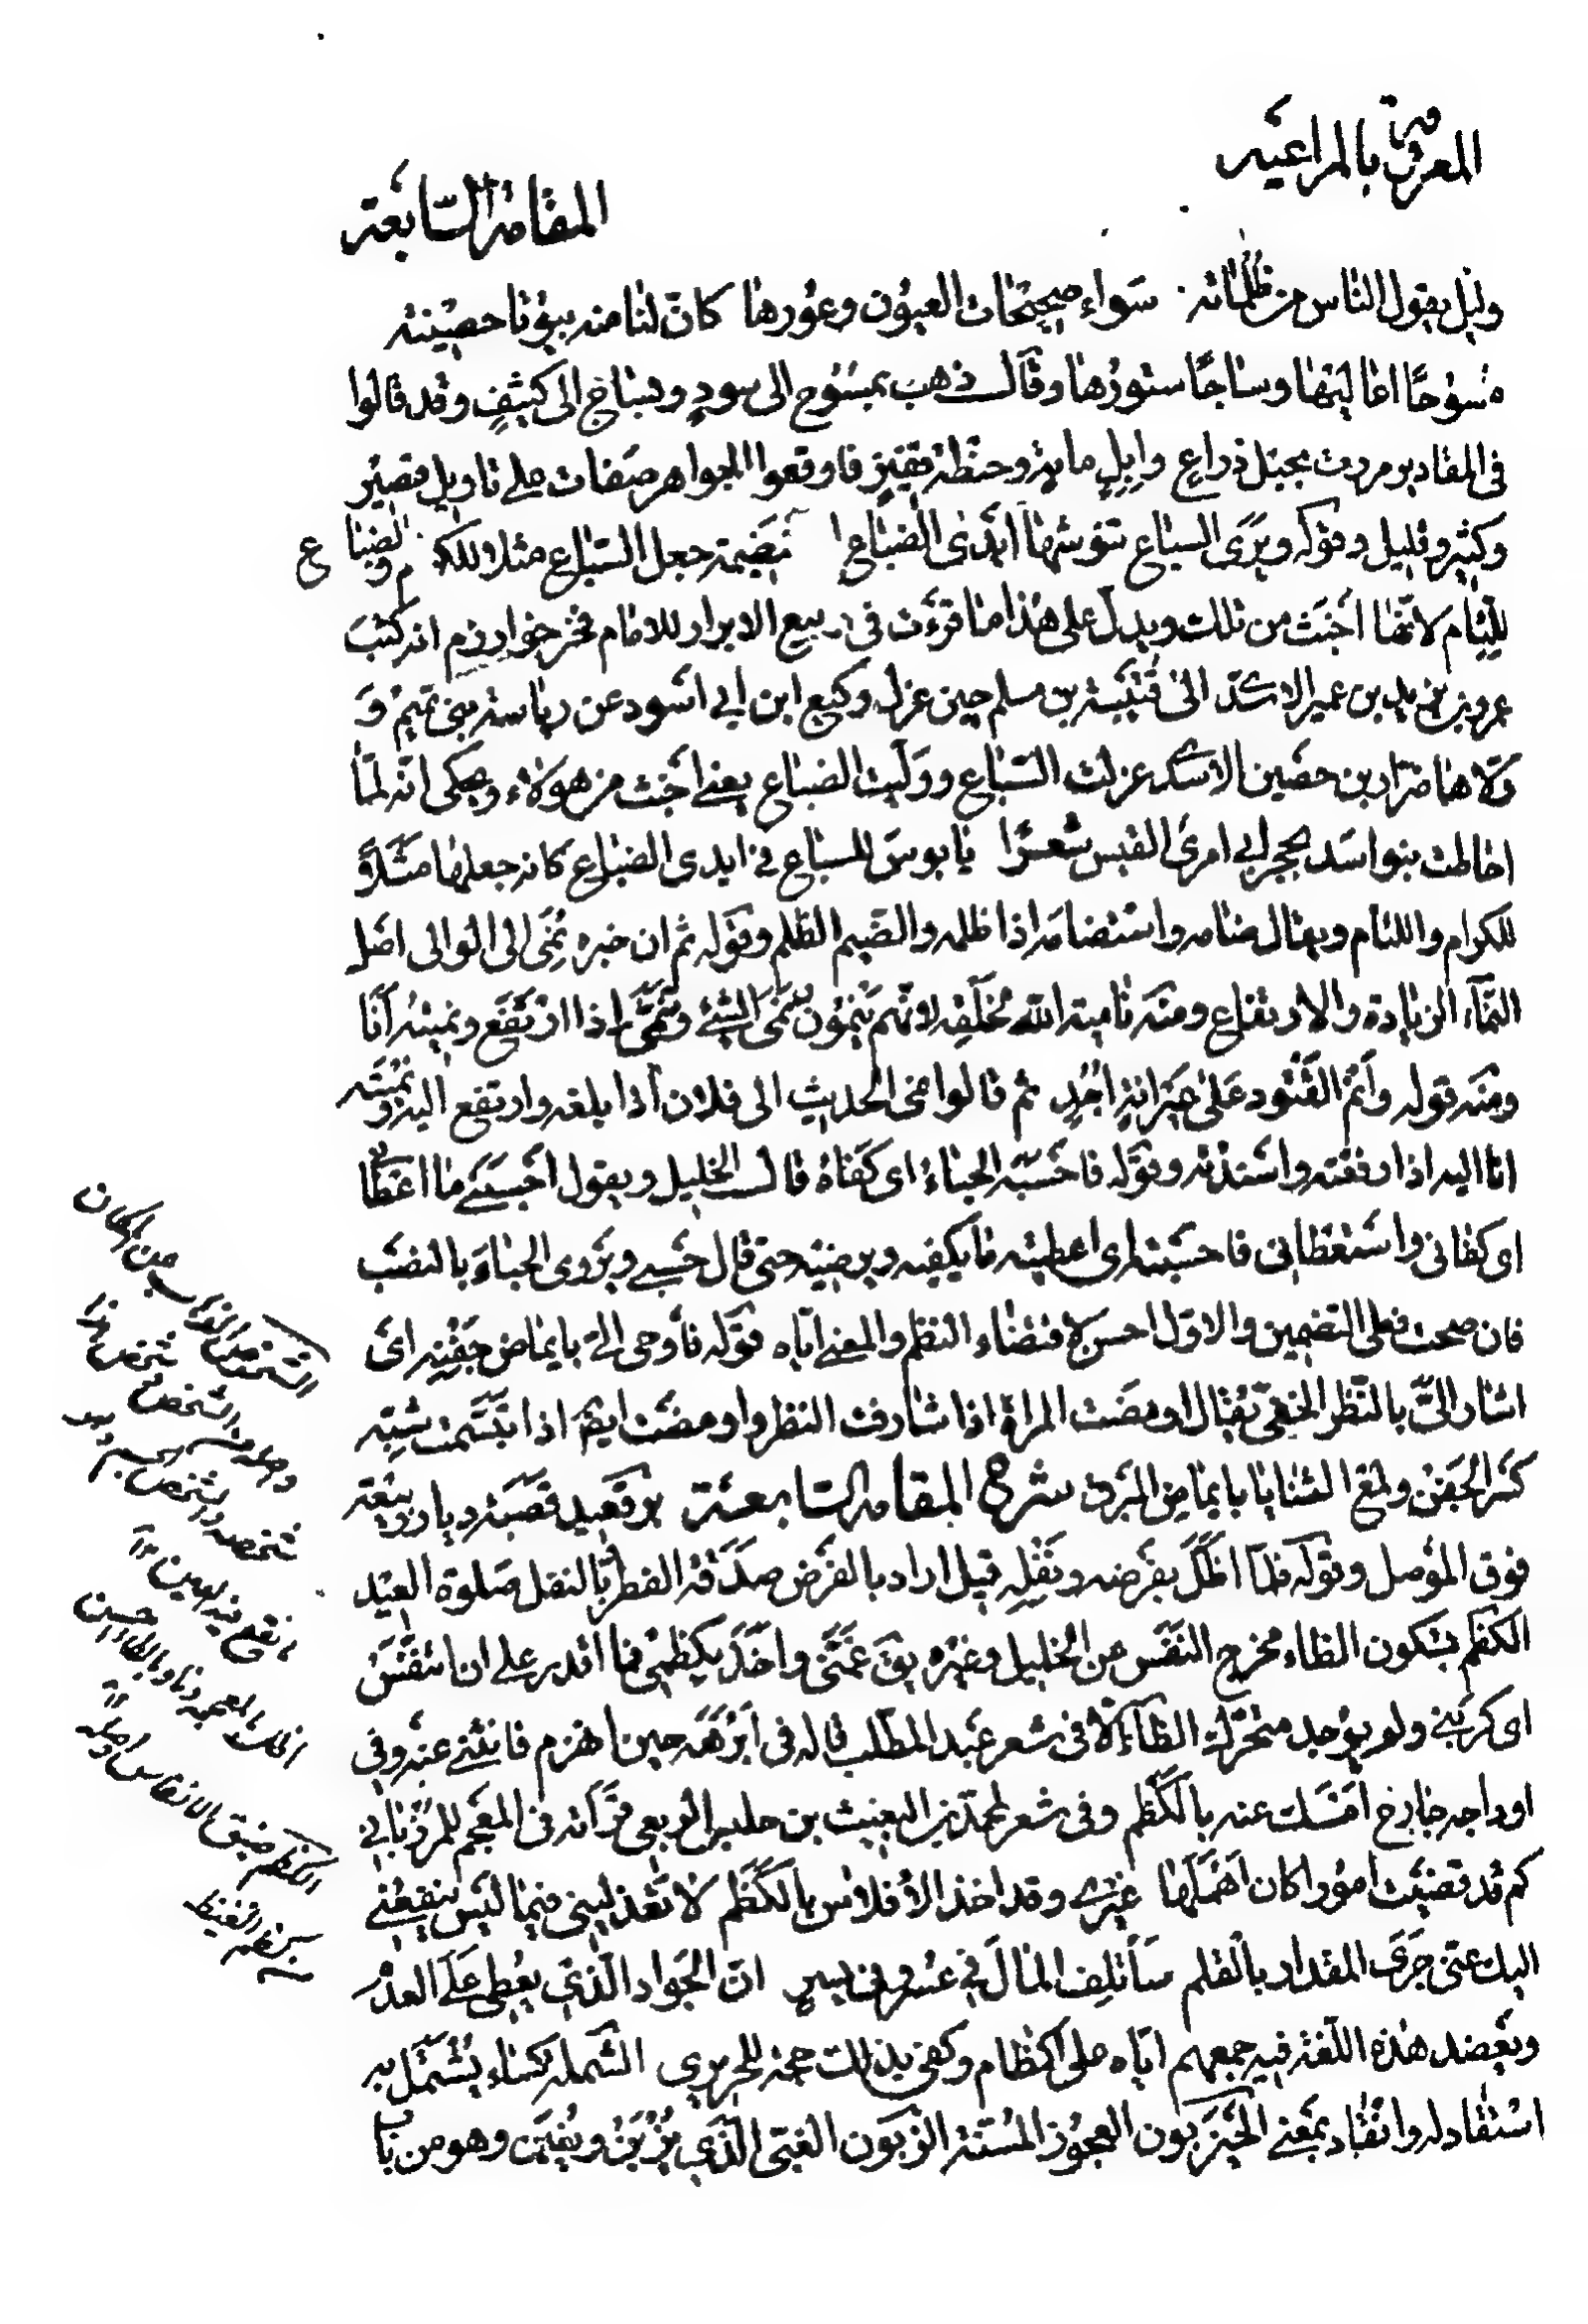 المعروفة بالمراغية
المقامة السّابعة
وليل يقول الناس من ظلماته سَواء صحيحات العيون وعُورها كانّ لنا منه بيوتا حصينة
مسُوحًا اعاليها وساجًا ستورُها وقال ذهب بمسُوح الى سودٍ وبساج الى كثيفٍ وقد قالوا
فى المقادير مررت بحبل ذراعٍ وابِلٍ ماية وحنطة قفيزٍ فاوقعوا الجواهر صفات على تاويل قصير
وكثير وقليل وقوله ويرى السباع تنوشها ايدى الضباع مَضيمة جعل السّباع مثلا للكرام والضباع
للّيام لانّها اخبث من تلك ويدل على هذا ما قرءت فى ربيع الابرار للامام فخر خوارزم انه كتب
عمرو بن يزيد بن عمير الاسدىّ الى قُتيبة بن مسلم حين عزل وكيع ابن ابي اسود عن رياسة بنى تميم وَ
وَلّاها ضرار بن حصين الاسدي عزلت السّباع ووليت الضباع يعنے اخبث من هولاء ويحكى انّه لمّا
احاطت بنو اسَد بحجر ابي امرئ القيس شعرًا يا بوس للسباع في ايدى الضباع كانه جعلها مثلاً
للكرام واللئام ويقال ضامه واستضامه اذا ظلمه والضّيم الظّلم وقوله ثم ان خبره نُمِىَ الى الوالى اصل
النّمآء الزيادة والارتفاع ومنه نامية الله لخلقه لانّهم يَنمُون يقال نَمَى الشئ وتَنَمَّى اذا ارتَفَع ونميتُه انَا
ومنه قوله وانمِ القُتُود عَلىٰ عَيرانةٍ اُجُدٍ ثم قالوا نمى الحديث الى فلان اذا بلغه وارتفع اليه ونميتَه
انا اليه اذا رفعته واسندته وقوله فاحسَبَه الحباءُ اى كفاهُ قال الخليل ويقول احسَبَنے ما اعطانى
اى كفانى واستعطانى فاحسَبته اى اعطيته ما يكفيه ويرضيه حتى قال حَسبے ويروى الحباءَ بالنصَب
فان صحت فعلى التضمين والاوّل احسن لاقتضاء النظم والمعنے ايّاه قوله فأوحى الىّ بايماض جفنِه اى
اشار الىّ بالنّظر الخفىّ يُقال اومضت المراة اذا سارقت النظر واومضَت ايضًا اذا تبسَّمت شبّه
كسر الجَفن ولمع الثنايا بايماض البَرق شرح المقامة السّابعة برقعيد قصبَة ديار ربيعة
فوق المَوصل وقوله فلمّا اظلَّ بفَرضه ونَفلِه قيل اراد بالفرض صدقة الفطر وبالنفل صلوة العيد
الكظم بسكون الظاء مخرج النفَس عن الخليل وغيره يقَ غمّنى واخَذ بكظمى فما اقدر على ان اتنفّسَ
اى كربنے ولم يوجد متحرّك الظآء الّا فى شعر عبد المطّلب قاله فى ابرهة حين انهزم فانثنے عنه وفى
اوداجه خارج امسك عنه بالكظم وفى شعر لمحمّد بن البعيث بن حلبس الربعى قرأته فى المعجم للمرزبانى
كم قد قضيت امورا كان اهملها غيرى وقد اخذ الافلاس بالكظم لا تعذلينى فيما ليس ينفعنے
اليك عنى جرى المقدار بالقلم سأتلف المال في عسر وفى يسر انّ الجواد الذى يعطى على العدم
ويعضد هذه اللغة فيه جمعهم ايّاه على اكظام وكفى بذلك حجة للحريرى الشملة كساء يشتمل به
استقاد له وانقاد بمعنے الحيزبون العجوز المسنة الزبون الغبى الّذى يزبن ويغبن وهو من باب